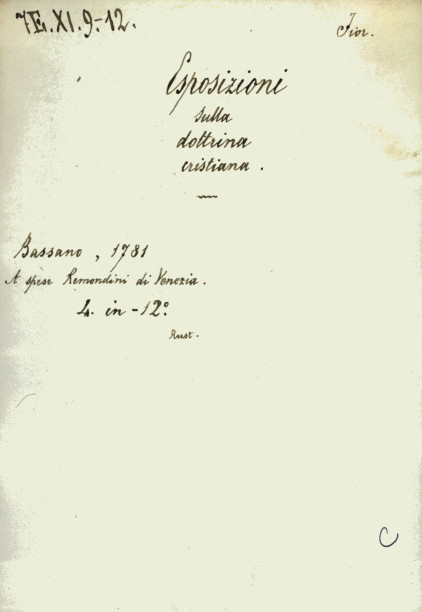 7E.XI.9-12.
Fior.
Esposizioni
sulla
dottrina
cristiana.
Bassano, 1781
A spese Remondini di Venezia.
4. in-12º
Rust.
C